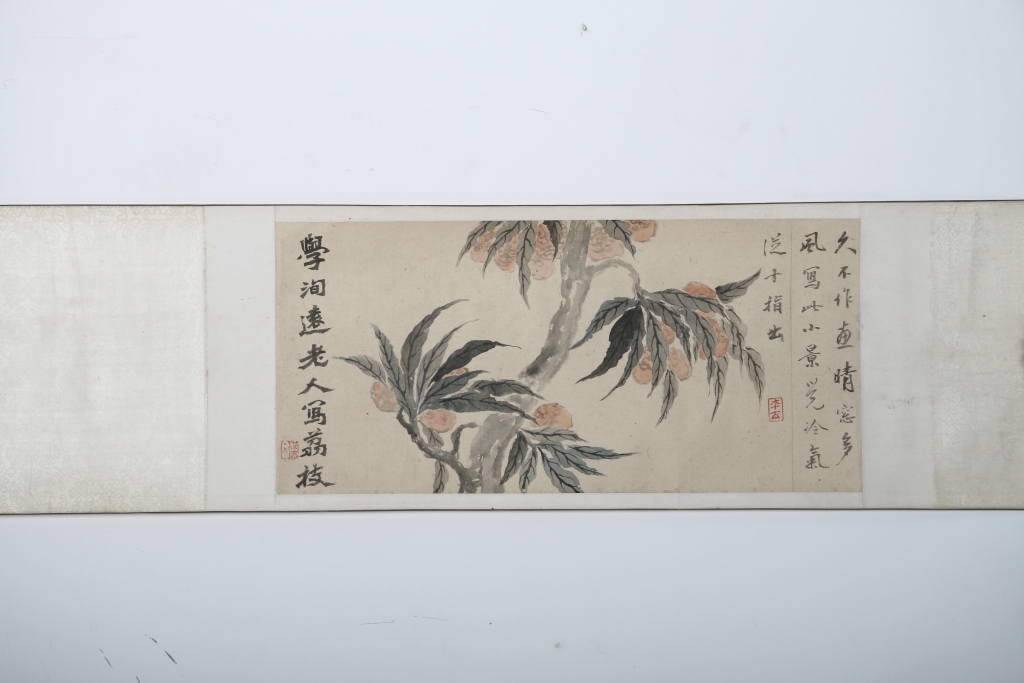 久不作画晴窓多
風寫此小景覺冷氣
從十指出
學洵遠老人寫荔枝